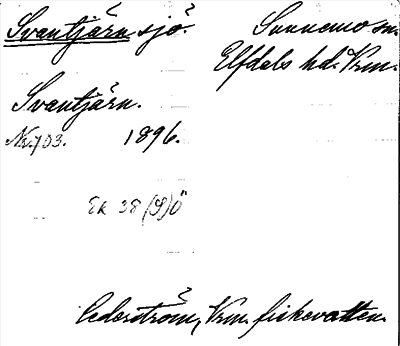 Svantjärn sjö.
Sunnemo sn.
Elfdals hd. Vrm.
Svantjärn.
Nr. 703. 1896.
Ek 38 (9) Ö
Cederström, Vrm. fiskevatten.